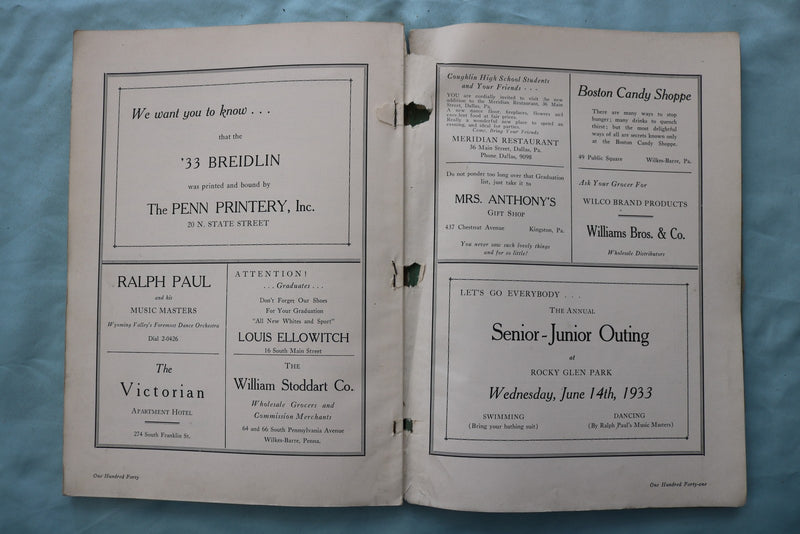 We want you to know . . .
that the
'33 BREIDLIN
was printed and bound by
The PENN PRINTERY, Inc.
20 N. STATE STREET
RALPH PAUL
and his
MUSIC MASTERS
Wyoming Valley's Foremost Dance Orchestra
Dial 2-0426
The
Victorian
APARTMENT HOTEL
274 South Franklin St.
ATTENTION!
. . . Graduates . . .
Don't Forget Our Shoes
For Your Graduation
"All New Whites and Sport"
LOUIS ELLOWITCH
16 South Main Street
THE
William Stoddart Co.
Wholesale Grocers and
Commission Merchants
64 and 66 South Pennsylvania Avenue
Wilkes-Barre, Penna.
One Hundred Forty
Coughlin High School Students
and Your Friends . . .
YOU are cordially invited to visit the new
addition to the Meridian Restaurant, 36 Main
Street, Dallas, Pa.
A new dance floor, fireplaces, flowers and
excellent food at fair prices.
Really a wonderful new place to spend an
evening, and ideal for parties.
Come, Bring Your Friends
MERIDIAN RESTAURANT
36 Main Street, Dallas, Pa.
Phone Dallas, 9098
Do not ponder too long over that Graduation
list, just take it to
MRS. ANTHONY'S
GIFT SHOP
437 Chestnut Avenue Kingston, Pa.
You never saw such lovely things
and for so little!
Boston Candy Shoppe
There are many ways to stop
hunger; many drinks to quench
thirst; but the most delightful
ways of all are secrets known only
at the Boston Candy Shoppe.
49 Public Square Wilkes-Barre, Pa.
Ask Your Grocer For
WILCO BRAND PRODUCTS
Williams Bros. & Co.
Wholesale Distributors
LET'S GO EVERYBODY . . .
THE ANNUAL
Senior-Junior Outing
at
ROCKY GLEN PARK
Wednesday, June 14th, 1933
SWIMMING DANCING
(Bring your bathing suit) (By Ralph Paul's Music Masters)
One Hundred Forty-one